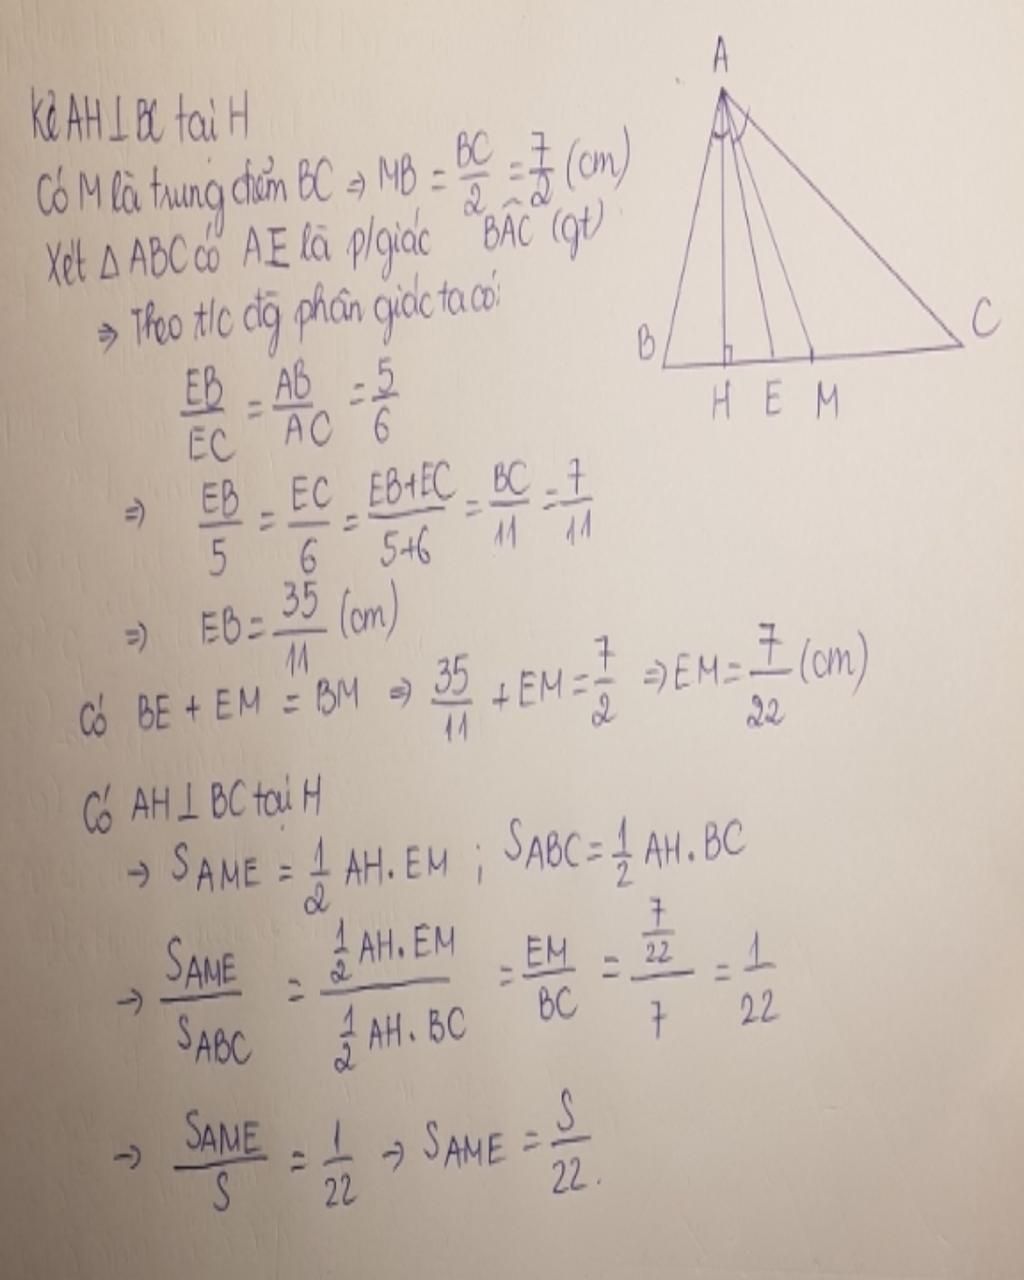 Kẻ AH ⊥ BC tại H
Có M là trung điểm BC ⇒ MB = BC/2 = 7/2 (cm)
Xét Δ ABC có AE là p/giác BÂC (gt)
⇒ Theo t/c đg phân giác ta có:
EB/EC = AB/AC = 5/6
⇒ EB/5 = EC/6 = EB+EC/5+6 = BC/11 = 7/11
⇒ EB = 35/11 (cm)
Có BE + EM = BM ⇒ 35/11 + EM = 7/2 ⇒ EM = 7/22 (cm)
Có AH ⊥ BC tại H
→ SAME = 1/2 AH. EM ; SABC = 1/2 AH. BC
→ SAME/SABC = 1/2 AH. EM / 1/2 AH. BC = EM/BC = 7/22 / 7 = 1/22
→ SAME/S = 1/22 → SAME = S/22.
A
B
C
H E M